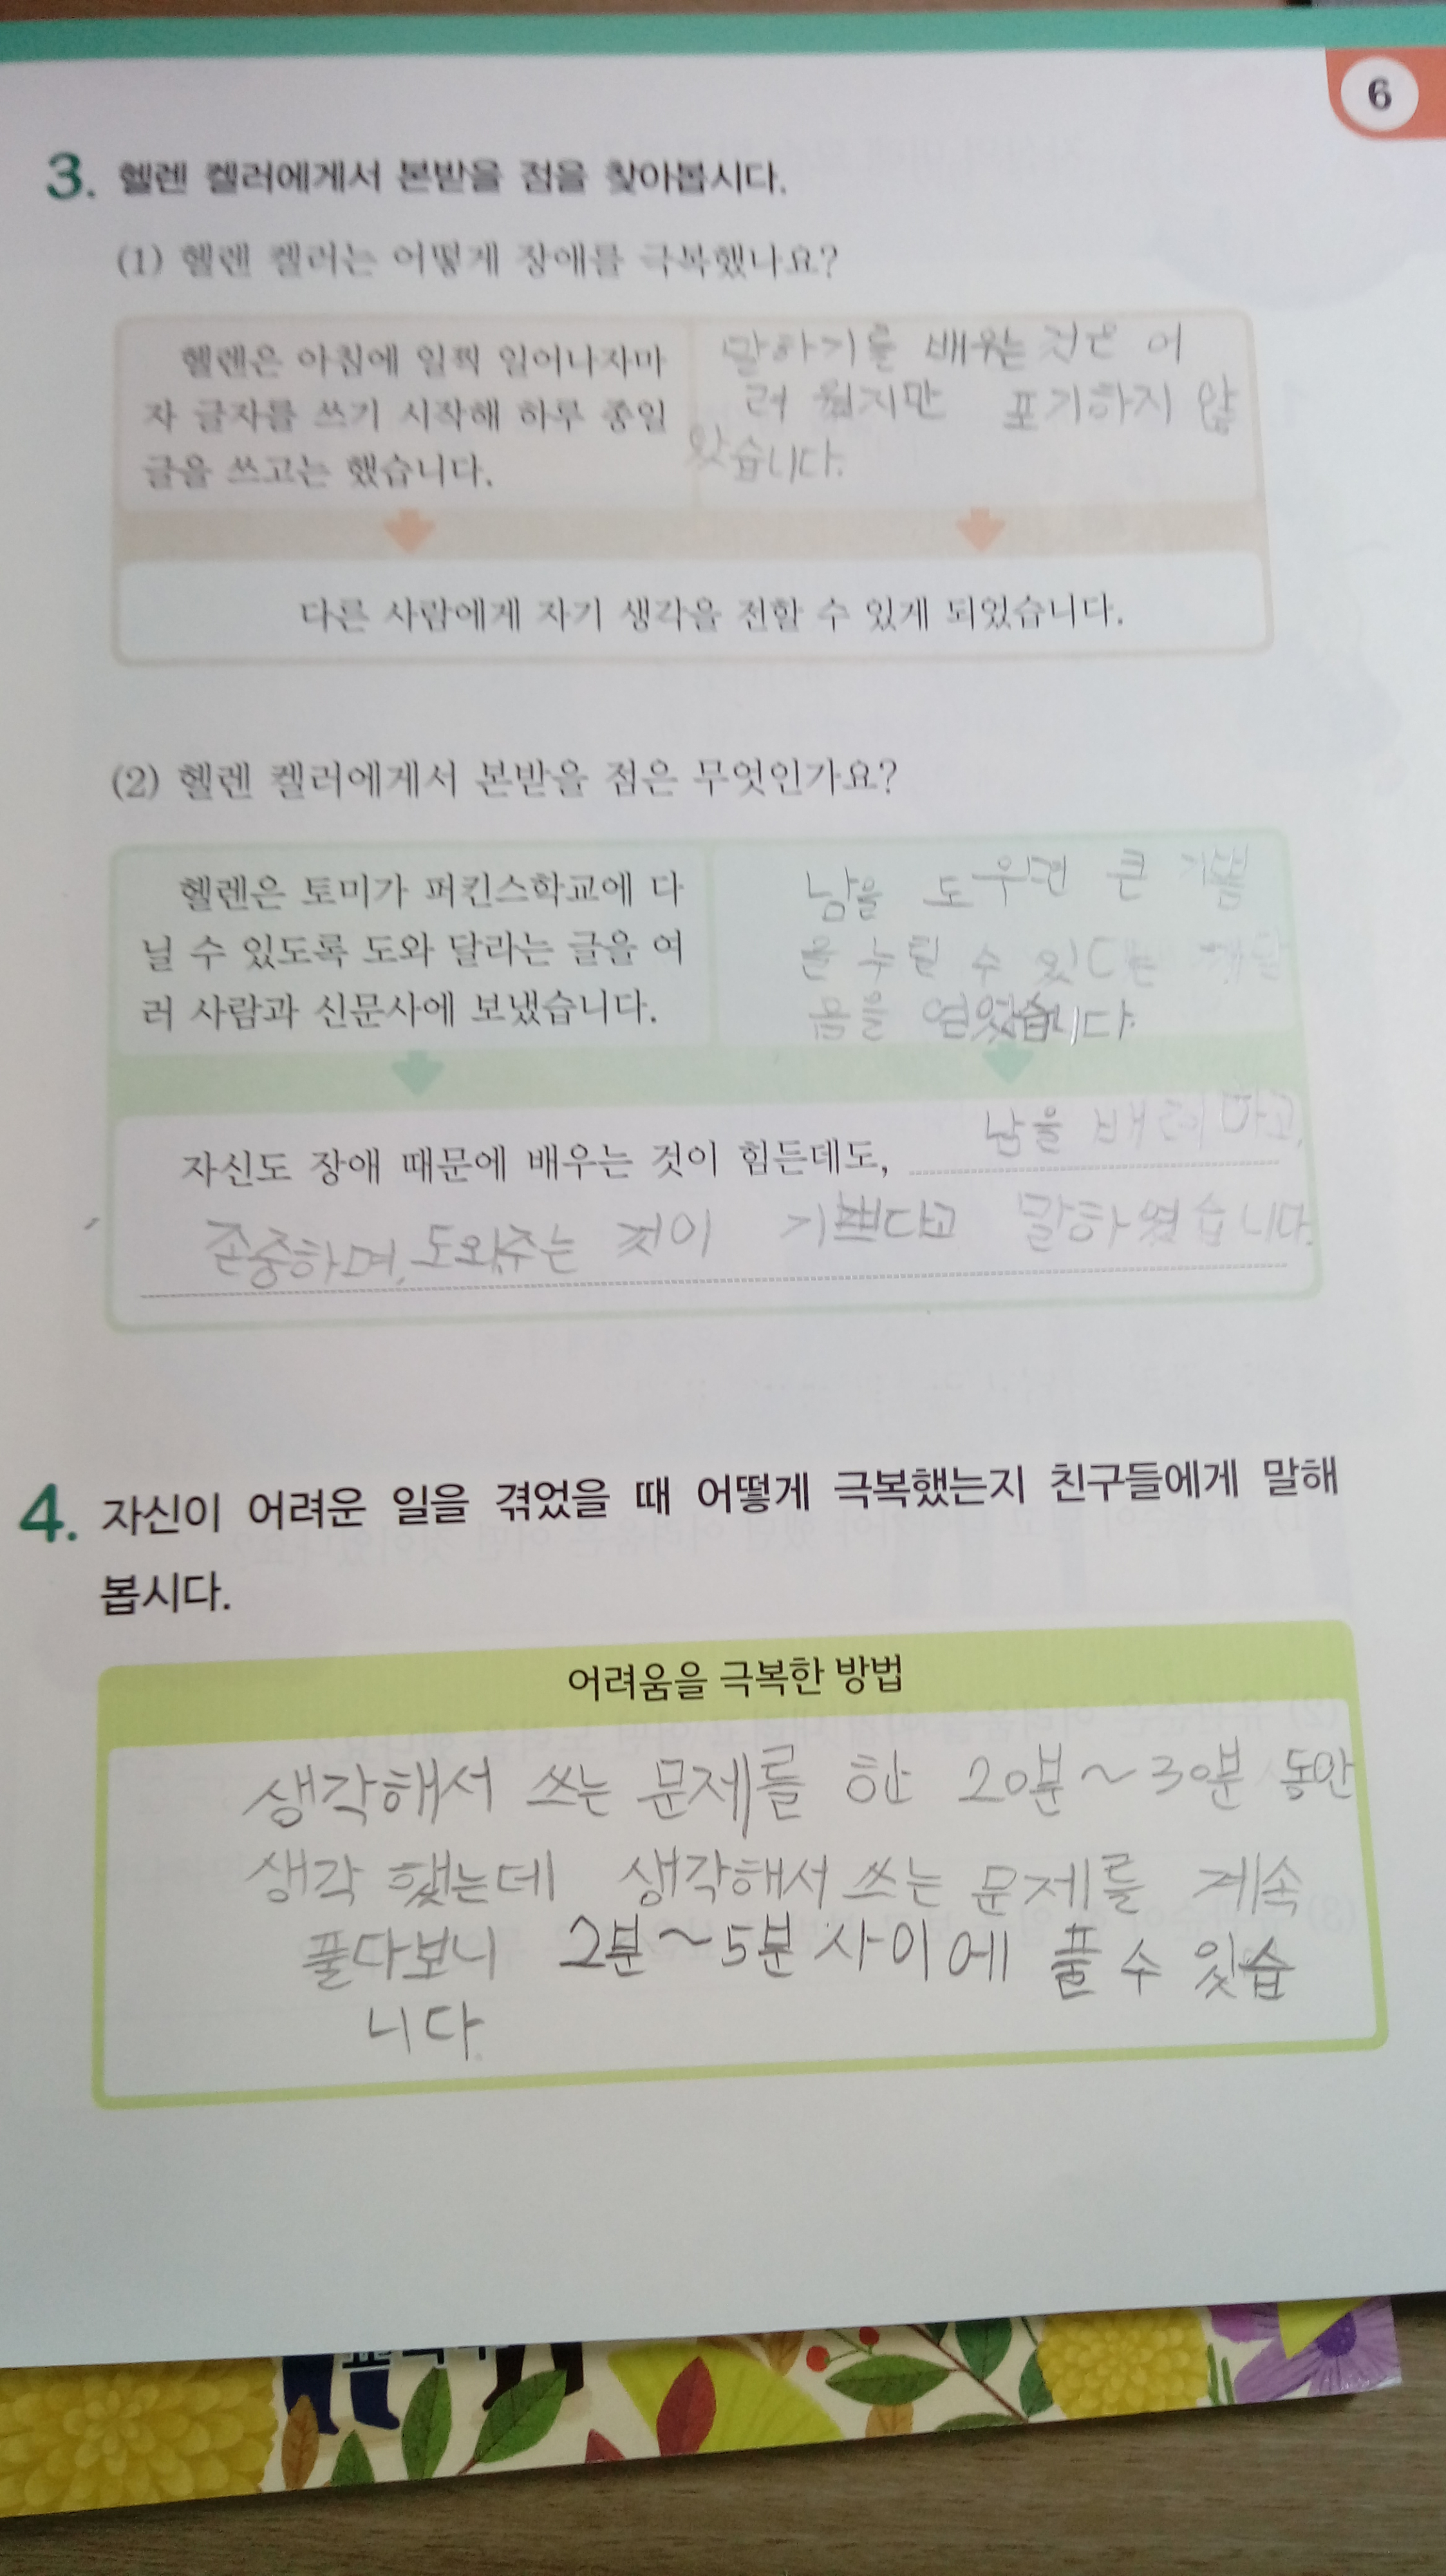 6
3. 헬렌 켈러에게서 본받을 점을 찾아봅시다.
(1) 헬렌 켈러는 어떻게 장애를 극복했나요?
헬렌은 아침에 일찍 일어나자마
자 글자를 쓰기 시작해 하루 종일
글을 쓰고는 했습니다.
말하기를 배우는 것은 어
려웠지만 포기하지 않
았습니다.
다른 사람에게 자기 생각을 전할 수 있게 되었습니다.
(2) 헬렌 켈러에게서 본받을 점은 무엇인가요?
헬렌은 토미가 퍼킨스학교에 다
닐 수 있도록 도와 달라는 글을 여
러 사람과 신문사에 보냈습니다.
남을 도우면 큰 기쁨
을 누릴 수 있다는
음을 얻었습니다.
자신도 장애 때문에 배우는 것이 힘든데도, 남을 배려하고,
존중하며, 도와주는 것이 기쁘다고 말하였습니다.
4. 자신이 어려운 일을 겪었을 때 어떻게 극복했는지 친구들에게 말해
봅시다.
어려움을 극복한 방법
생각해서 쓰는 문제를 한 20분~30분 동안
생각 했는데 생각해서 쓰는 문제를 계속
풀다보니 2분~5분 사이에 풀 수 있습
니다.